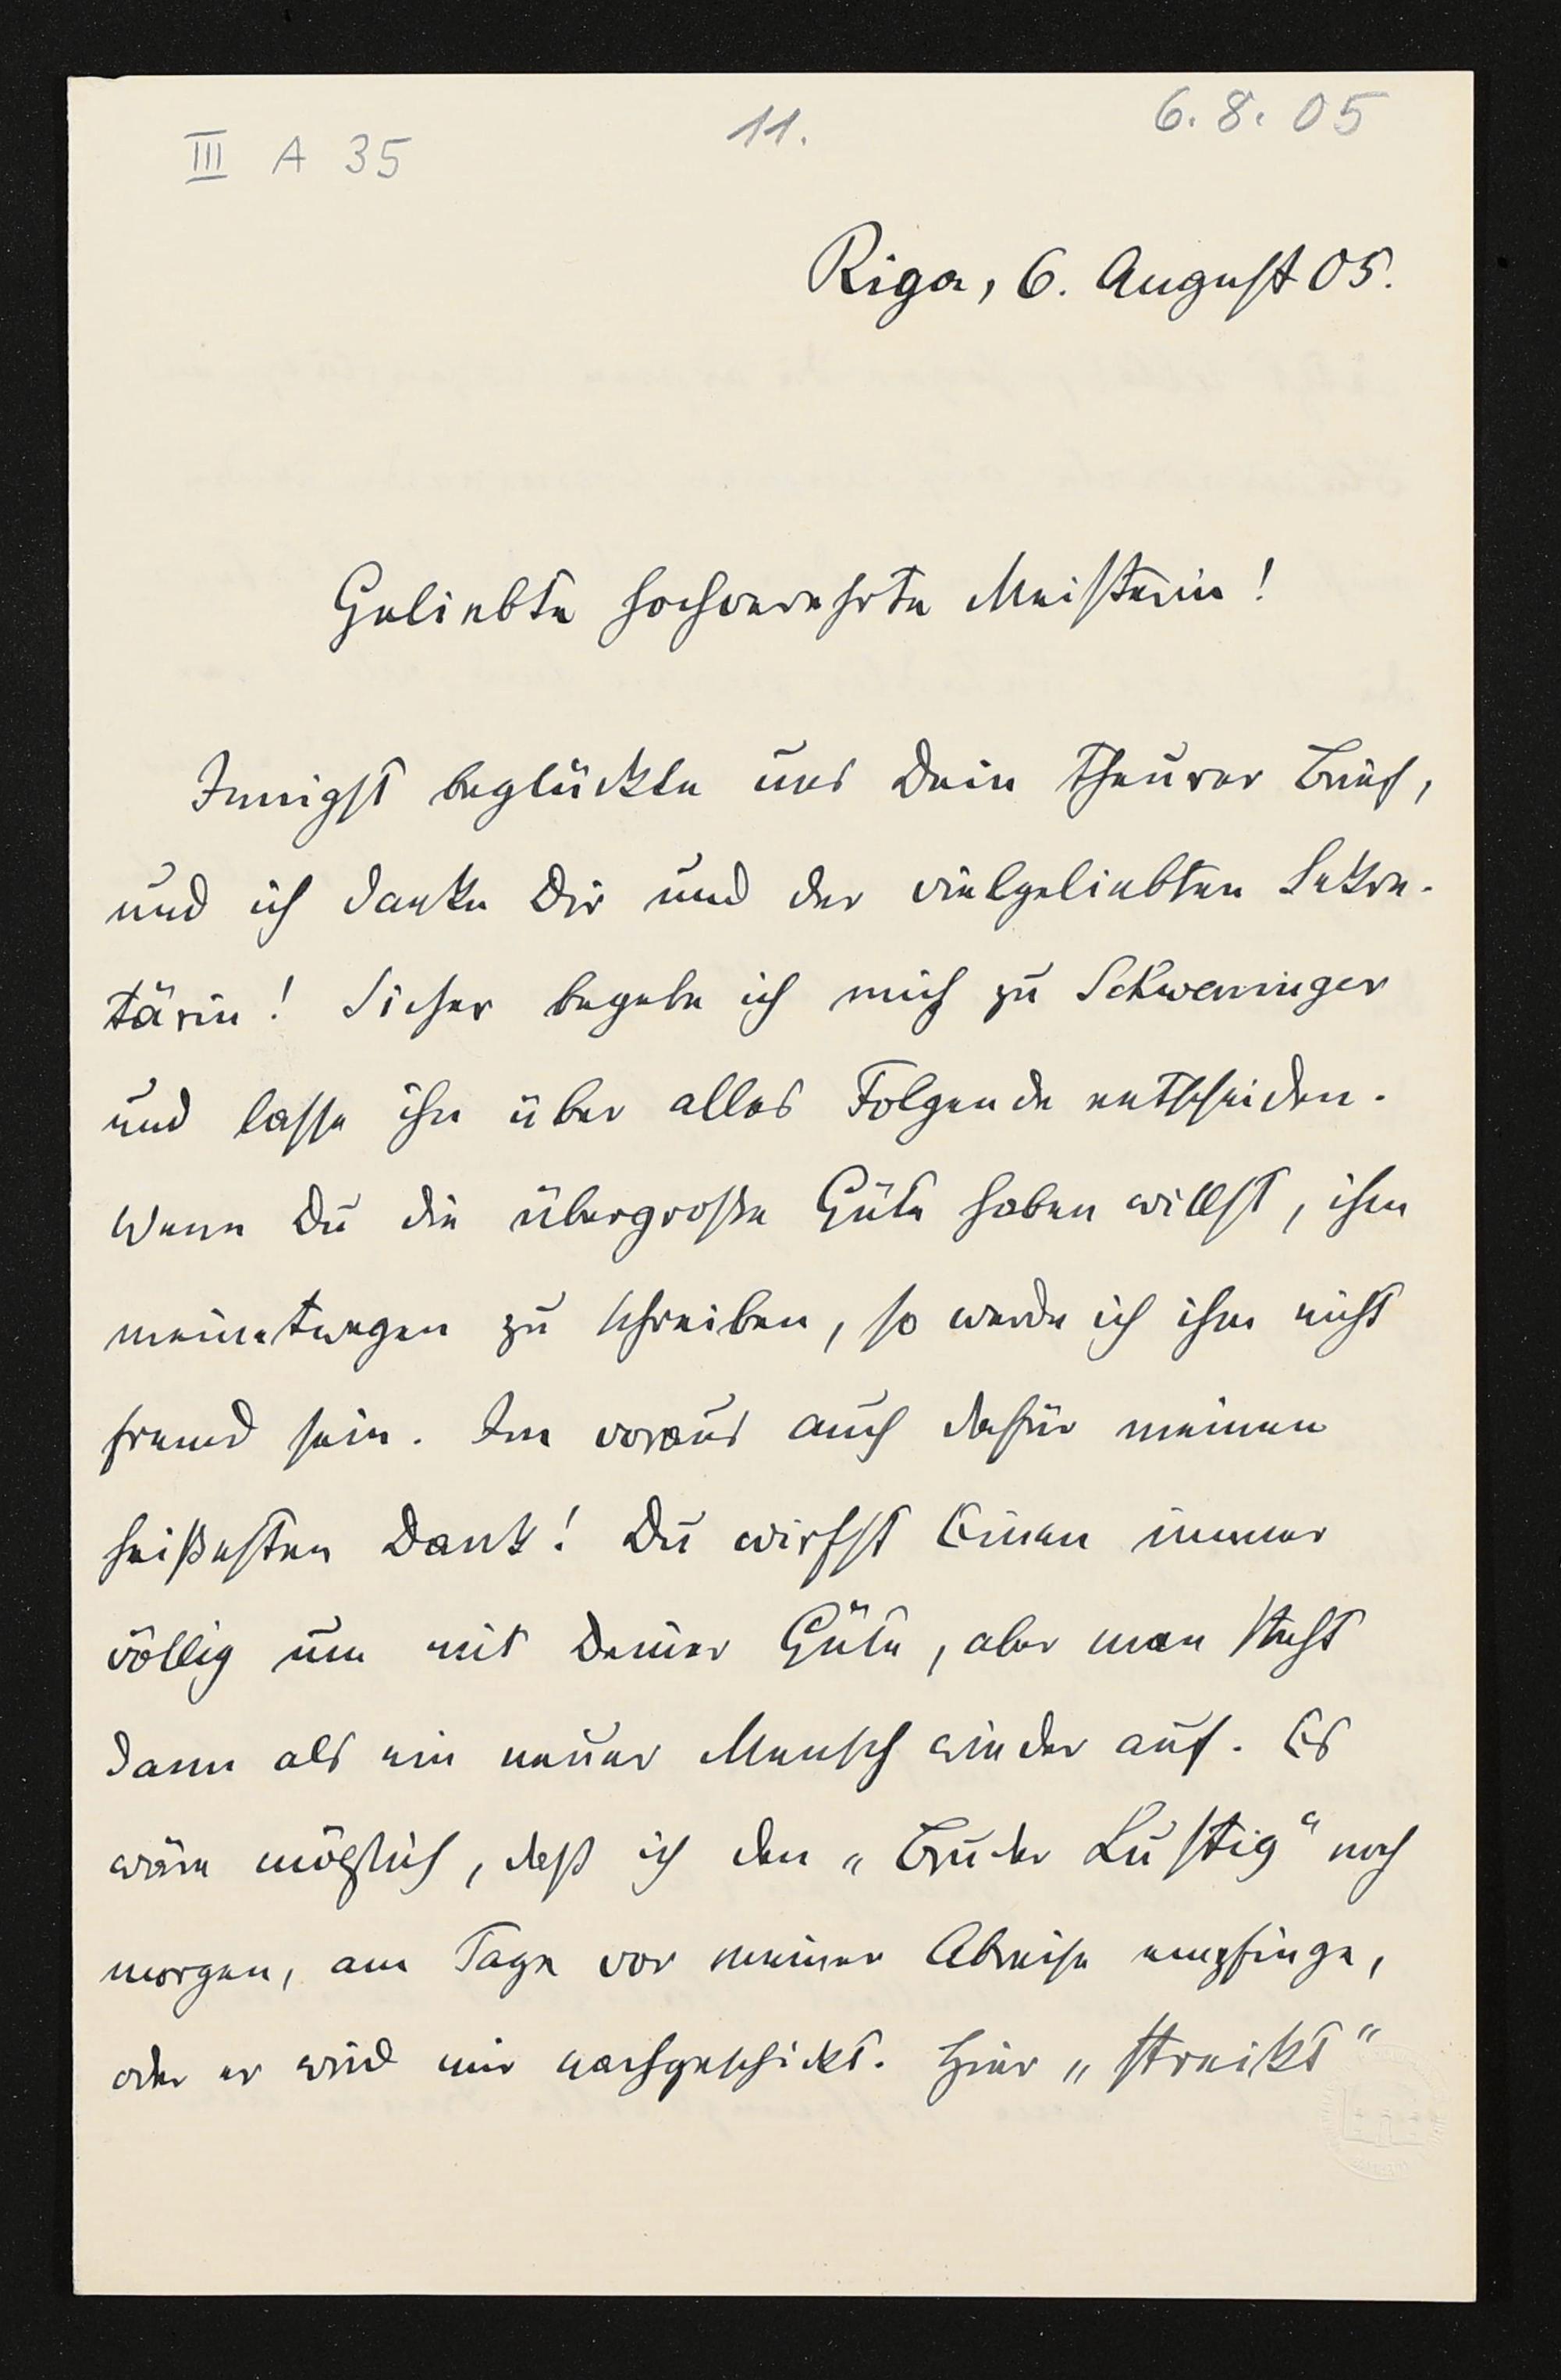 III A 35
11.
6. 8. 05
Riga, 6. August 05.
Geliebte hochverehrte Meisterin!
Innigst beglückte uns Dein theurer Brief,
und ich danke Dir und der vielgeliebten Sekre-
tärin! Sicher begebe ich mich zu Schweninger
und lasse ihn über alles Folgende entscheiden.
Wenn Du die übergroße Güte haben willst, ihm
meinetwegen zu schreiben, so werde ich ihm nicht
fremd sein. Im voraus auch dafür meinen
heißesten Dank! Du wirfst Einen immer
völlig um mit Deiner Güte, aber man steht
dann als ein neuer Mensch wieder auf. Es
wäre möglich, daß ich den „Bruder Lustig“ noch
morgen, am Tage vor meiner Abreise empfinge,
oder er wird mir nachgeschickt. Hier „streikt“